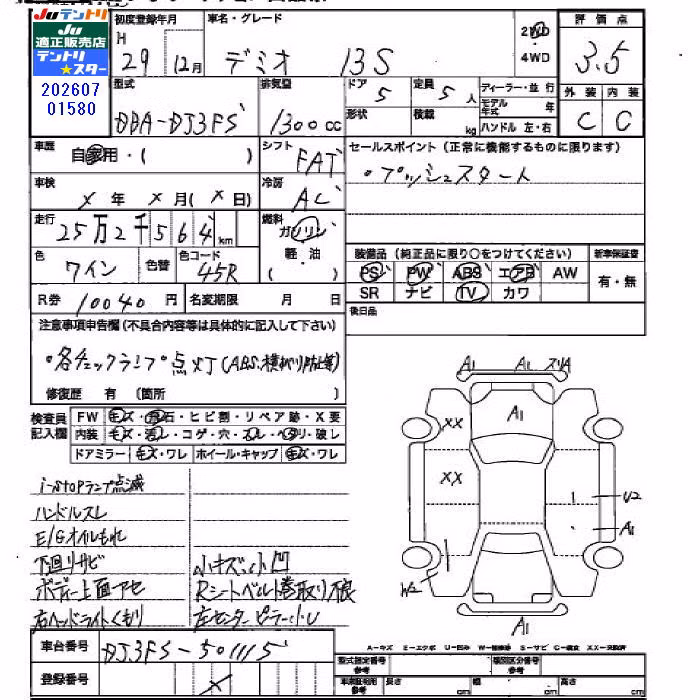 Juテントリ
Ju
適正販売店
テントリ
★スター
202607
01580
初度登録年月
H 29 12月
車名・グレード
デミオ 13S
2WD
4WD
評価点
3.5
型式
DBA-DJ3FS
排気量
1300cc
ドア 5
定員 5人
形状
積載 kg
ディーラー・並行
モデル年式 年
ハンドル 左・右
外装 内装
C C
車歴
自家用・( )
シフト
FAT
セールスポイント(正常に機能するものに限ります)
・プッシュスタート
車検
X年 X月(X日)
冷房
AC
走行
25万2千564km
燃料
ガソリン
軽・油
( )
色
ワイン
色替
色コード
45R
装備品(純正品に限り○をつけてください)
新車保証書
PS PW ABS エアB AW
SR ナビ TV カワ
有・無
R券 10040円
名変期限 月 日
後日品
注意事項申告欄(不具合内容等は具体的に記入して下さい)
・各チェックランプ点灯(ABS、横スベリ防止等)
修復歴 有 (箇所 )
検査員
記入欄
FW キズ・飛石・ヒビ割・リペア跡・X要
内装 キズ・汚レ・コゲ・穴・スレ・ヘタリ・破レ
ドアミラー キズ・ワレ ホイール・キャップ キズ・ワレ
i-stopランプ点滅
ハンドルスレ
E/Gオイルもれ
下回リサビ
小キズ小凹
ボデー上面アセ
Rシートベルト巻取リ不良
右ヘッドライトくもり
左センターピラー小U
A1 A1 スリA
A1
XX
XX
U2
A1
W2
A1
A−キズ E−エクボ U−凹み W−補修跡 S−サビ C−腐食 XX−交換済
車台番号
DJ3FS-501115
登録番号
X
型式指定番号
参考
類別区分番号
参考
車庫証明用
参考
長さ cm
幅 cm
高さ cm